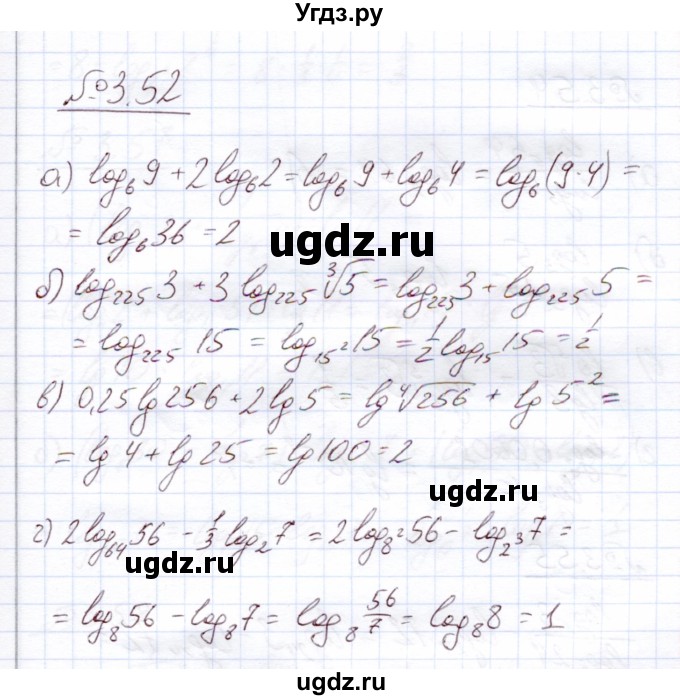 Угдз.ру
№3.52
а) log₆9 + 2log₆2 = log₆9 + log₆4 = log₆(9·4) =
= log₆36 = 2
ugdz.ru
б) log₂₂₅3 + 3log₂₂₅∛5 = log₂₂₅3 + log₂₂₅5 =
= log₂₂₅15 = log₁₅²15 = 1/2 log₁₅15 = 1/2
ugdz.ru
в) 0,25lg256 + 2lg5 = lg∜256 + lg5² =
= lg4 + lg25 = lg100 = 2
ugdz.ru
г) 2log₆₄56 - 1/3 log₂7 = 2log₈²56 - log₂³7 =
= log₈56 - log₈7 = log₈ 56/7 = log₈8 = 1
ugdz.ru
ugdz.ru